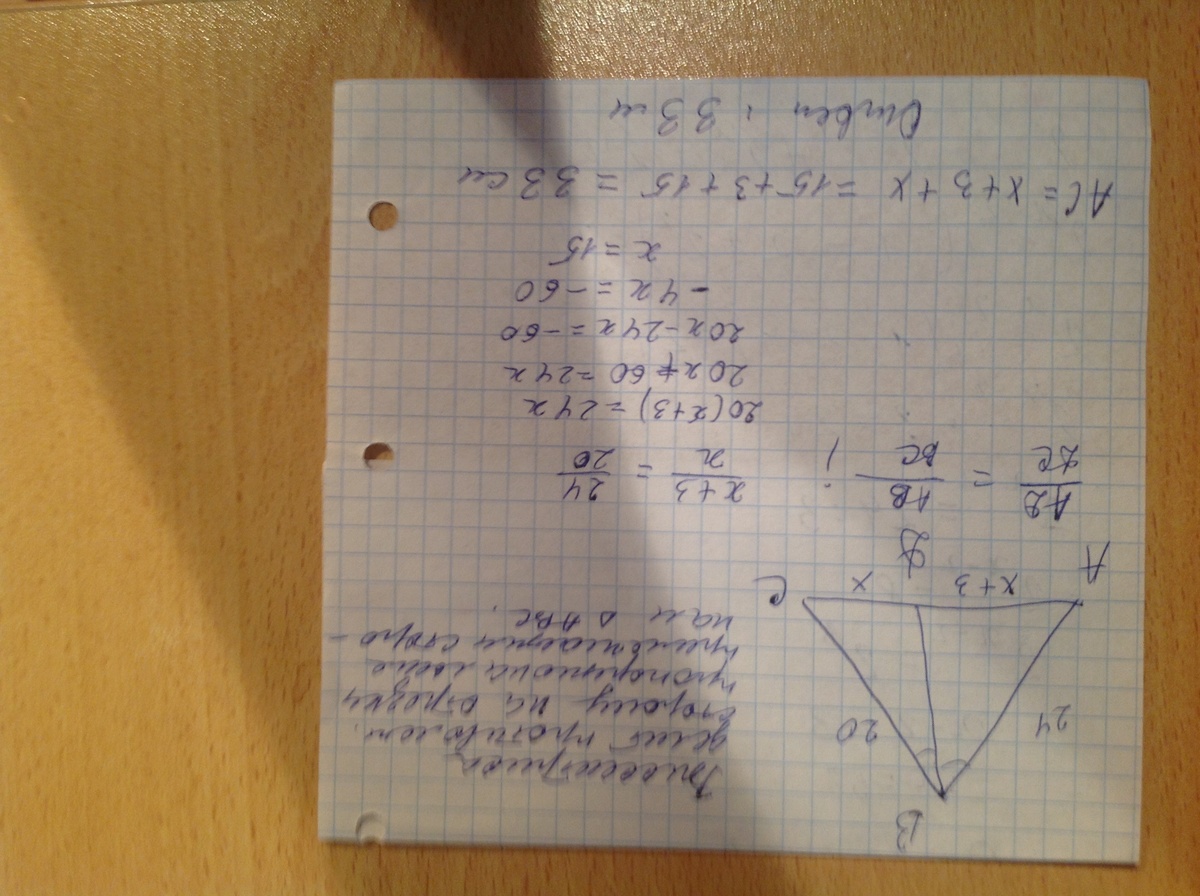 B
Биссектриса
делит противолеж.
сторону на отрезки
24
20
пропорциональные
прилежащим сторо-
нам Δ ABC.
A
x+3
D
x
C
AD/DC = AB/BC ; (x+3)/x = 24/20
20(x+3) = 24x
20x + 60 = 24x
20x - 24x = -60
-4x = -60
x = 15
AC = x+3+x = 15+3+15 = 33 см
Ответ: 33 см